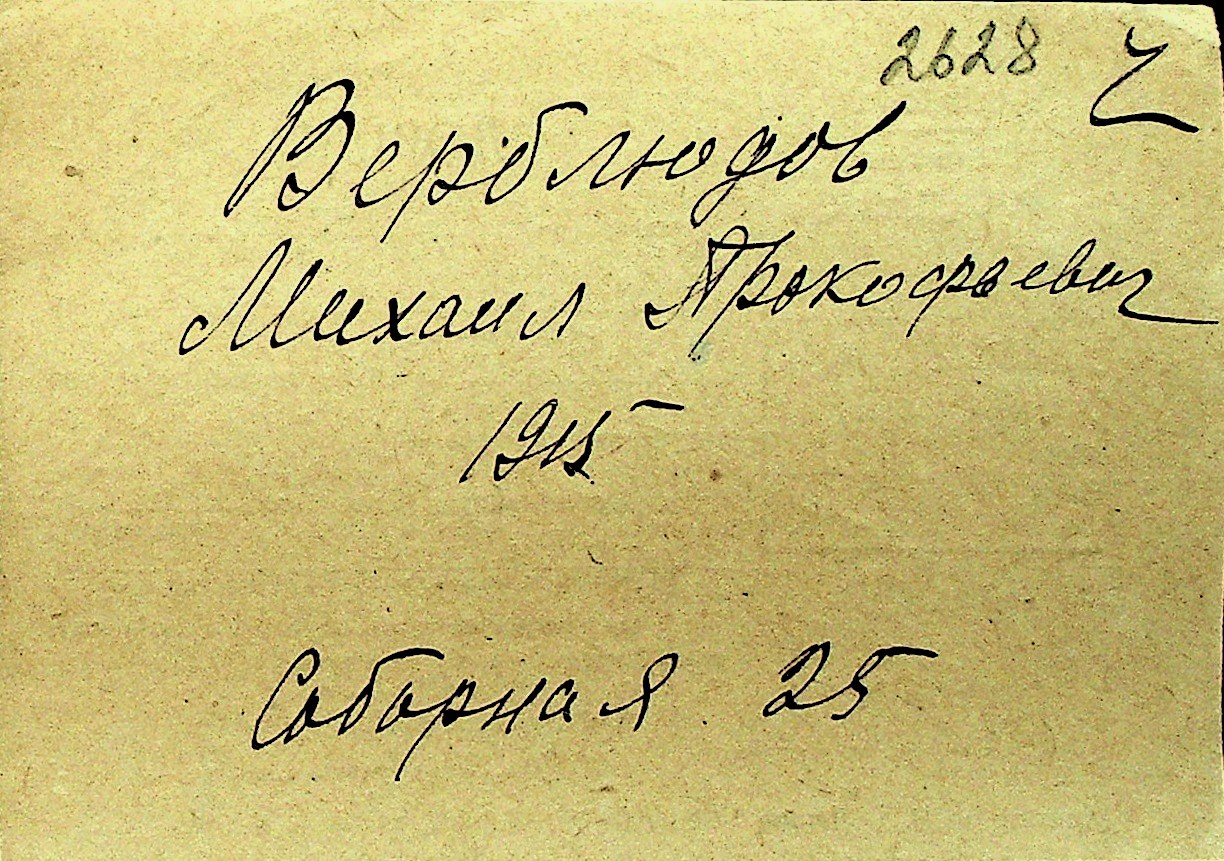 2628
Верблюдов
Михаил Прокофьевич
1915
Соборная 25